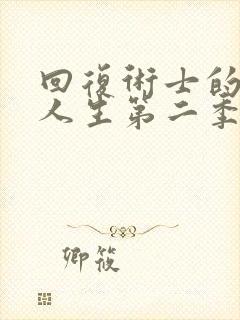 回復術士的
人生第二季
卿筱